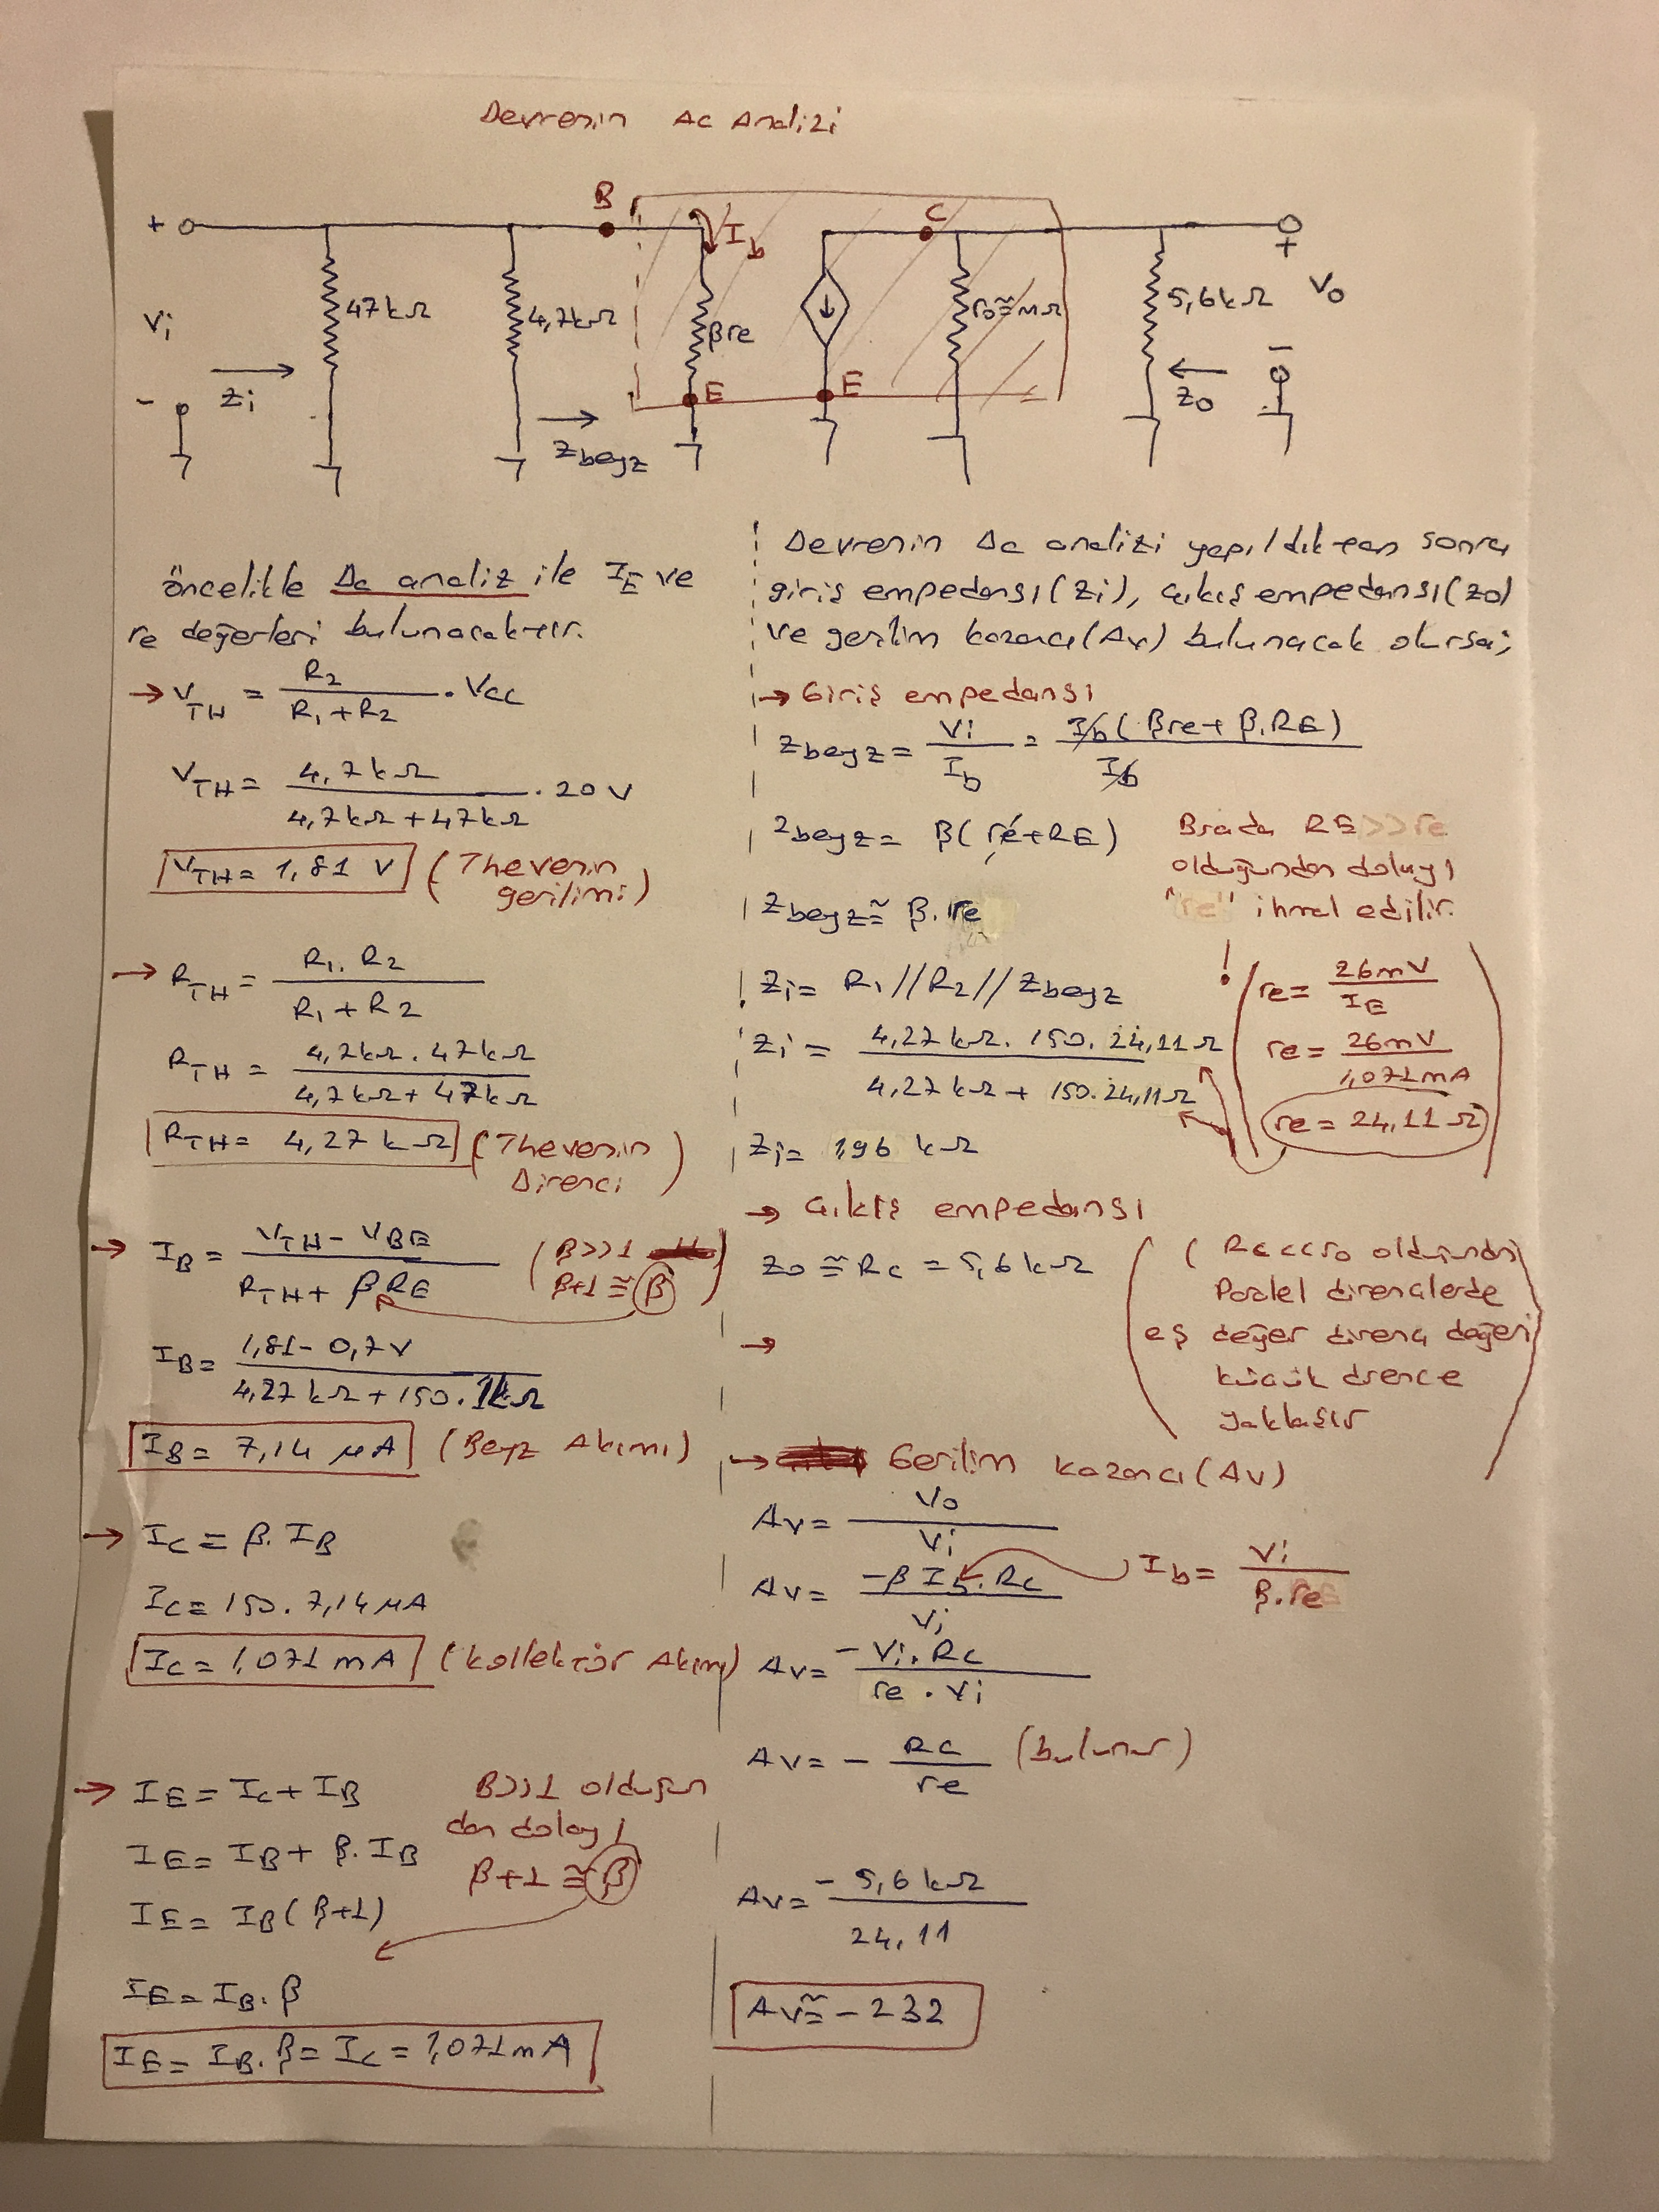 Devrenin AC Analizi
B
C
Ib
+
47kΩ
4,7kΩ
βre
ro≅MΩ
5,6kΩ
+
Vo
Vi
Zi
-
E
E
Zo
-
Zbeyz
öncelikle Dc analiz ile IE ve
re değerleri bulunacaktır.
→ VTH = R2 / R1+R2 . Vcc
VTH = 4,7kΩ / 4,7kΩ+47kΩ . 20V
VTH = 1,81 V (Thevenin
gerilimi)
→ RTH = R1. R2 / R1+R2
RTH = 4,7kΩ. 47kΩ / 4,7kΩ+ 47kΩ
RTH = 4,27 kΩ (Thevenin
Direnci)
→ IB = VTH - VBE / RTH+ βRE (β>>1
β+1≅β)
IB= 1,81- 0,7V / 4,27 kΩ+150.1kΩ
IB= 7,14 μA (Beyz Akımı)
→ IC = β. IB
IC= 150. 7,14μA
IC= 1,071 mA (kollektör Akımı)
→ IE = IC+ IB
IE= IB+ β.IB
IE= IB(β+1)
β>>1 olduğun
dan dolayı
β+1≅β
IE= IB.β
IE= IB.β= IC= 1,071mA
Devrenin Dc analizi yapıldıktan sonra
giriş empedansı(Zi), çıkış empedansı(Zo)
ve gerilim kazancı(Av) bulunacak olursa;
→ Giriş empedansı
Zbeyz= Vi / Ib = Ib( βre+ β.RE) / Ib
Zbeyz= β(re+RE)
Zbeyz≅ β.re
Burada RE>>re
olduğundan dolayı
"re" ihmal edilir.
Zi= R1//R2//Zbeyz
Zi= 4,27kΩ. 150. 24,11Ω / 4,27kΩ+ 150.24,11Ω
Zi= 1,96 kΩ
! re= 26mV / IE
re= 26mV / 1,071mA
re= 24,11Ω
→ çıkış empedansı
Zo≅Rc = 5,6kΩ
( Rc<<ro olduğundan
Paralel dirençlerde
eş değer direnç değeri
küçük dirence
yaklaşır
→
→ Gerilim kazancı(Av)
Av= Vo / Vi
Av= -β Ib.Rc / Vi
Ib= Vi / β.re
Av= -Vi.Rc / re . Vi
Av= - Rc / re (bulunur)
Av= - 5,6kΩ / 24,11
Av≅ -232